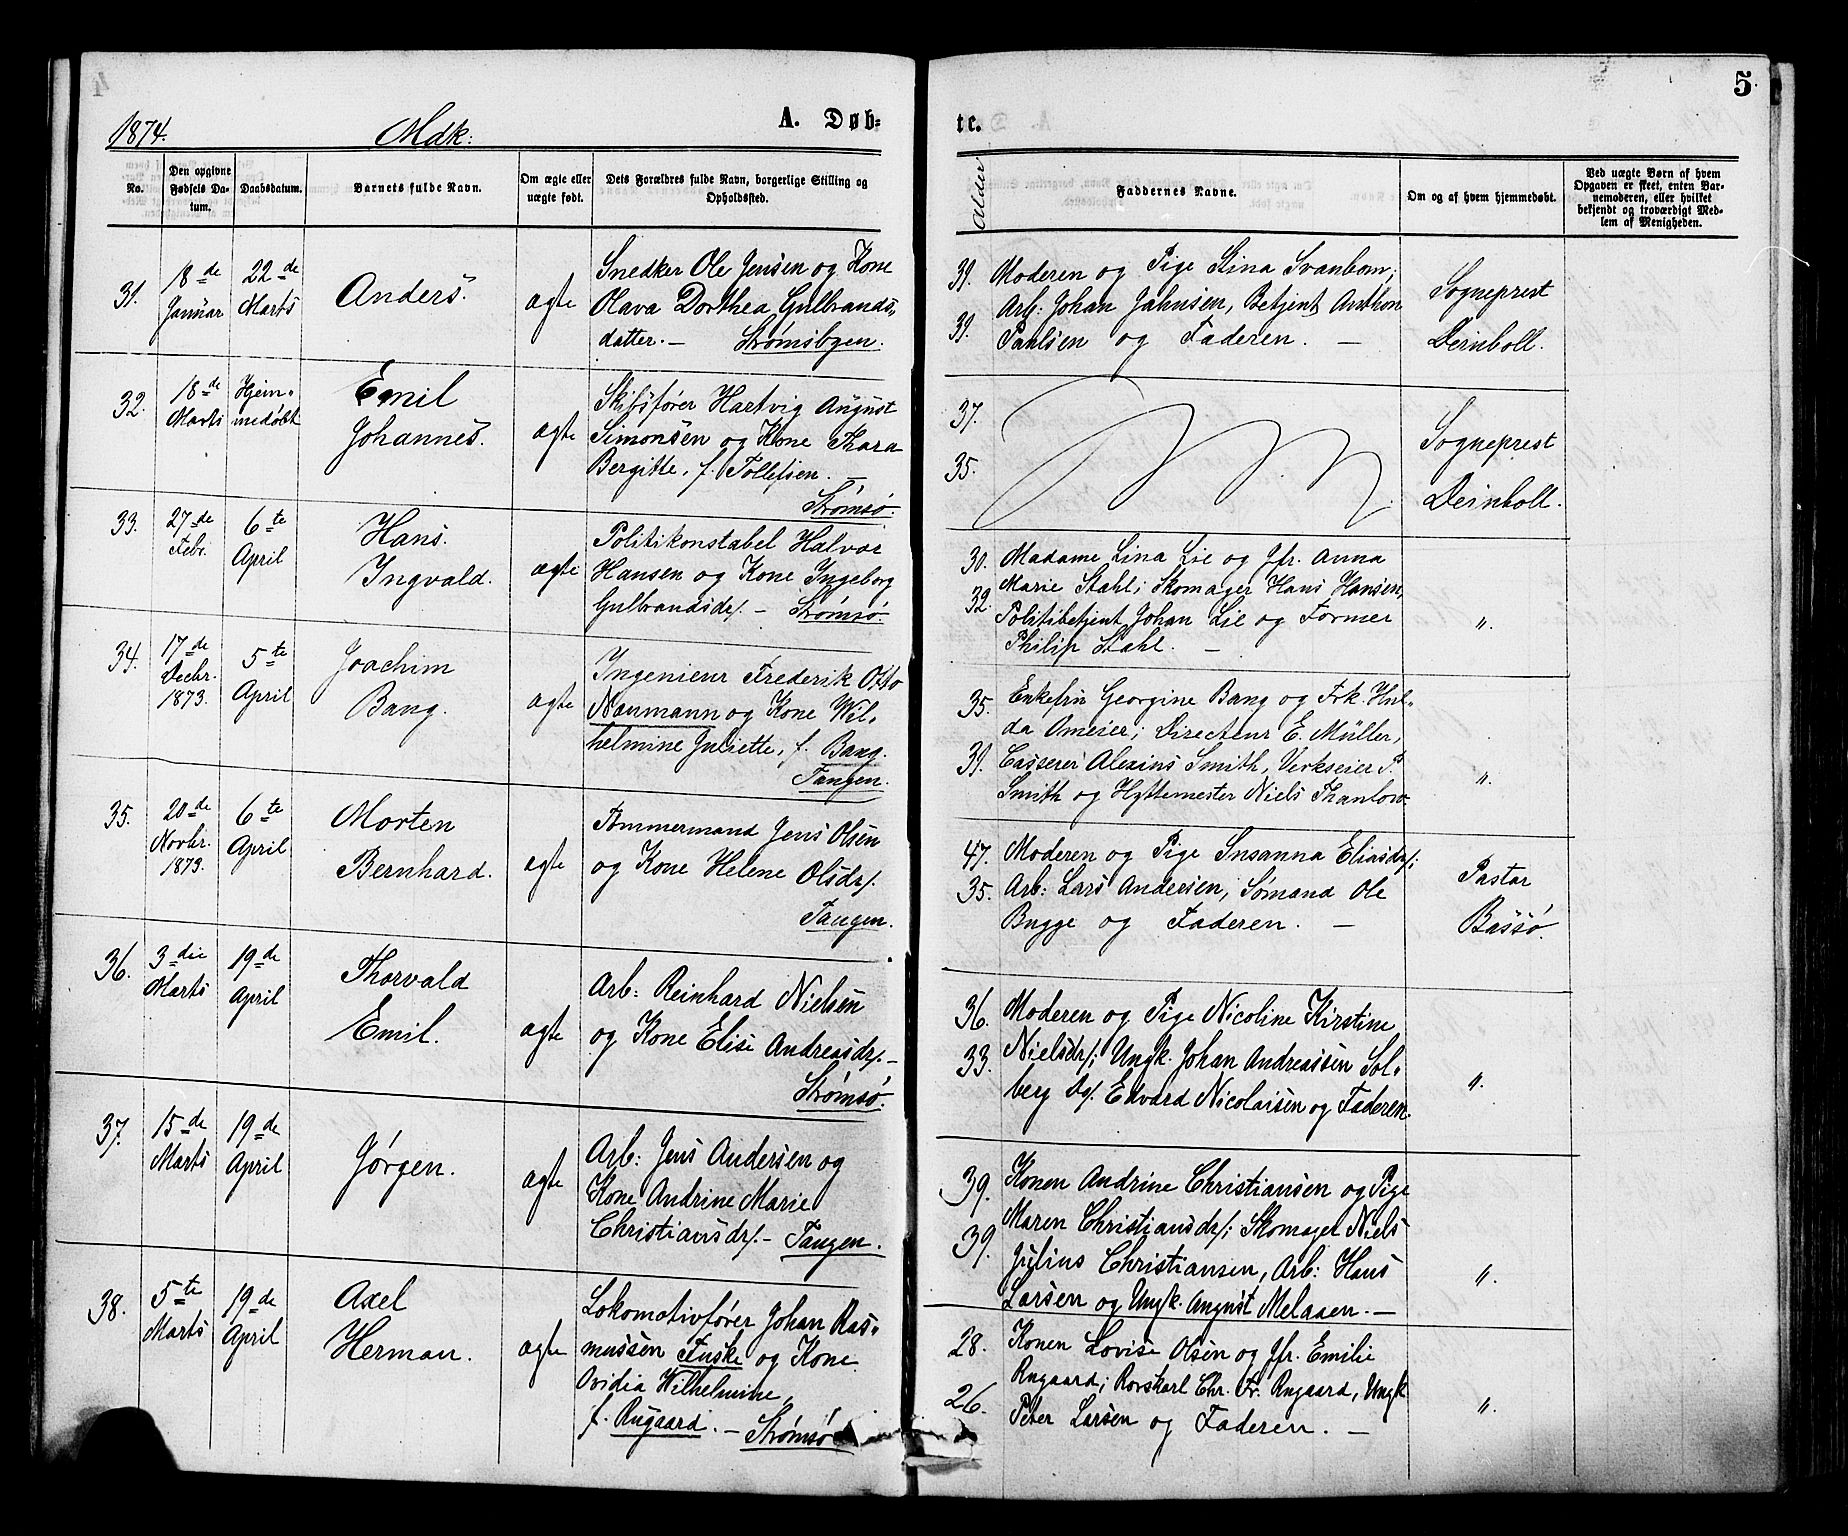 1874. Mdk: A. Døb-
te. 5.
No.
Den opgivne
Fødsels Da-
tum.
Daabsdatum.
Barnets fulde Navn.
Om ægte eller
uægte født.
Dets Forældres fulde Navn, borgerlige Stilling og
Opholdssted.
Alder
Faddernes Navne.
Om og af hvem hjemmedøbt.
Ved uægte Børn af hvem
Opgaven er skeet, enten Bar-
nemoderen, eller hvilket
bekjendt og troværdigt Med-
lem af Menigheden.
31.
18de
Januar
22de
Marts
Anders.
ægte
Snedker Ole Jensen og Kone
Olava Dorthea Gulbrands-
datter. — Strømsbyen.
39.
39.
Moderen og Pige Stina Svanbom;
Arb: Johan Jahnsen, Betjent Anthon
Paulsen og Faderen. —
Sogneprest
Deinboll.
32.
18de
Marts
Hjem-
medøbt
Emil
Johannes.
ægte
Skibsfører Hartvig August
Simonsen og Kone Thara
Bergitte, f. Tollefsen. —
Strømsø.
37.
35.
Sogneprest
Deinboll.
33.
27de
Febr.
6te
April
Hans.
Ingvald.
ægte
Politikonstabel Halvor
Hansen og Kone Ingeborg
Gulbrandsd/. — Strømsø.
30.
32.
Madame Lina Lie og Jfr. Anna
Marie Stahl; Skomager Hans Hansen,
Politibetjent Johan Lie og Former
Philip Stahl. —
"
34.
17de
Decbr.
1873.
5te
April
Joachim
Bang.
ægte
Ingenieur Frederik Otto
Naumann og Kone Wil-
helmine Juliette, f. Bang.
Tangen.
35.
39.
Enkefru Georgine Bang og Frk. Hul-
da Ameier; Directeur E. Müller,
Casserer Alexius Smith, Verkseier P.
Smith og Hyttemester Niels Thaulow.
"
35.
20de
Novbr.
1873.
6te
April
Morten
Bernhard.
ægte
Tømmermand Jens Olsen
og Kone Helene Olsdr/.
Tangen.
47.
35.
Moderen og Pige Susanna Eliasdr/;
Arb: Lars Andersen, Sømand Ole
Bugge og Faderen. —
Pastor
Bassø.
36.
3die
Marts
19de
April
Thorvald
Emil.
ægte
Arb: Reinhard Nielsen
og Kone Elise Andreasdr/. —
Strømsø.
36.
33.
Moderen og Pige Nicoline Kirstine
Nielsdr/; Ungk. Johan Andreassen Sol-
berg Do/. Edvard Nicolaisen og Faderen.
"
37.
15de
Marts
19de
April
Jørgen.
ægte
Arb: Jens Andersen og
Kone Andrine Marie
Christiansdr/. — Tangen.
39.
39.
Konen Andrine Christiansen og Pige
Maren Christiansdr/; Skomager Niels
Julius Christiansen, Arb: Hans
Larsen og Ungk. August Melaaen. —
"
38.
5te
Marts
19de
April
Axel
Herman.
ægte
Lokomotivfører Johan Ras-
mussen Fuske og Kone
Ovidia Wilhelmine,
f. Rugaard. — Strømsø
28.
26.
Konen Lovise Olsen og Jfr. Emilie
Rugaard; Rorskarl Chr. Fr. Rugaard, Ungk.
Peter Larsen og Faderen. —
"